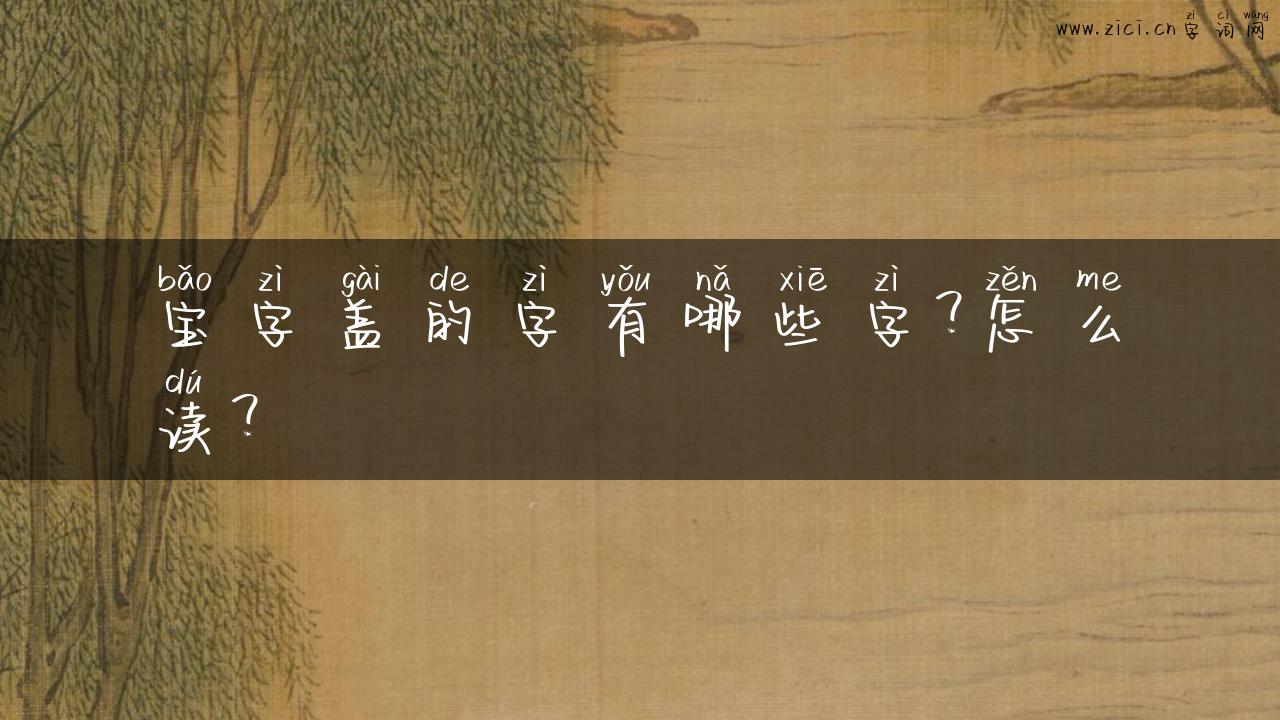 zì cí wǎng
www.zici.cn字词网
bǎo zì gài de zì yǒu nǎ xiē zì zěn me
宝字盖的字有哪些字?怎么
dú
读?